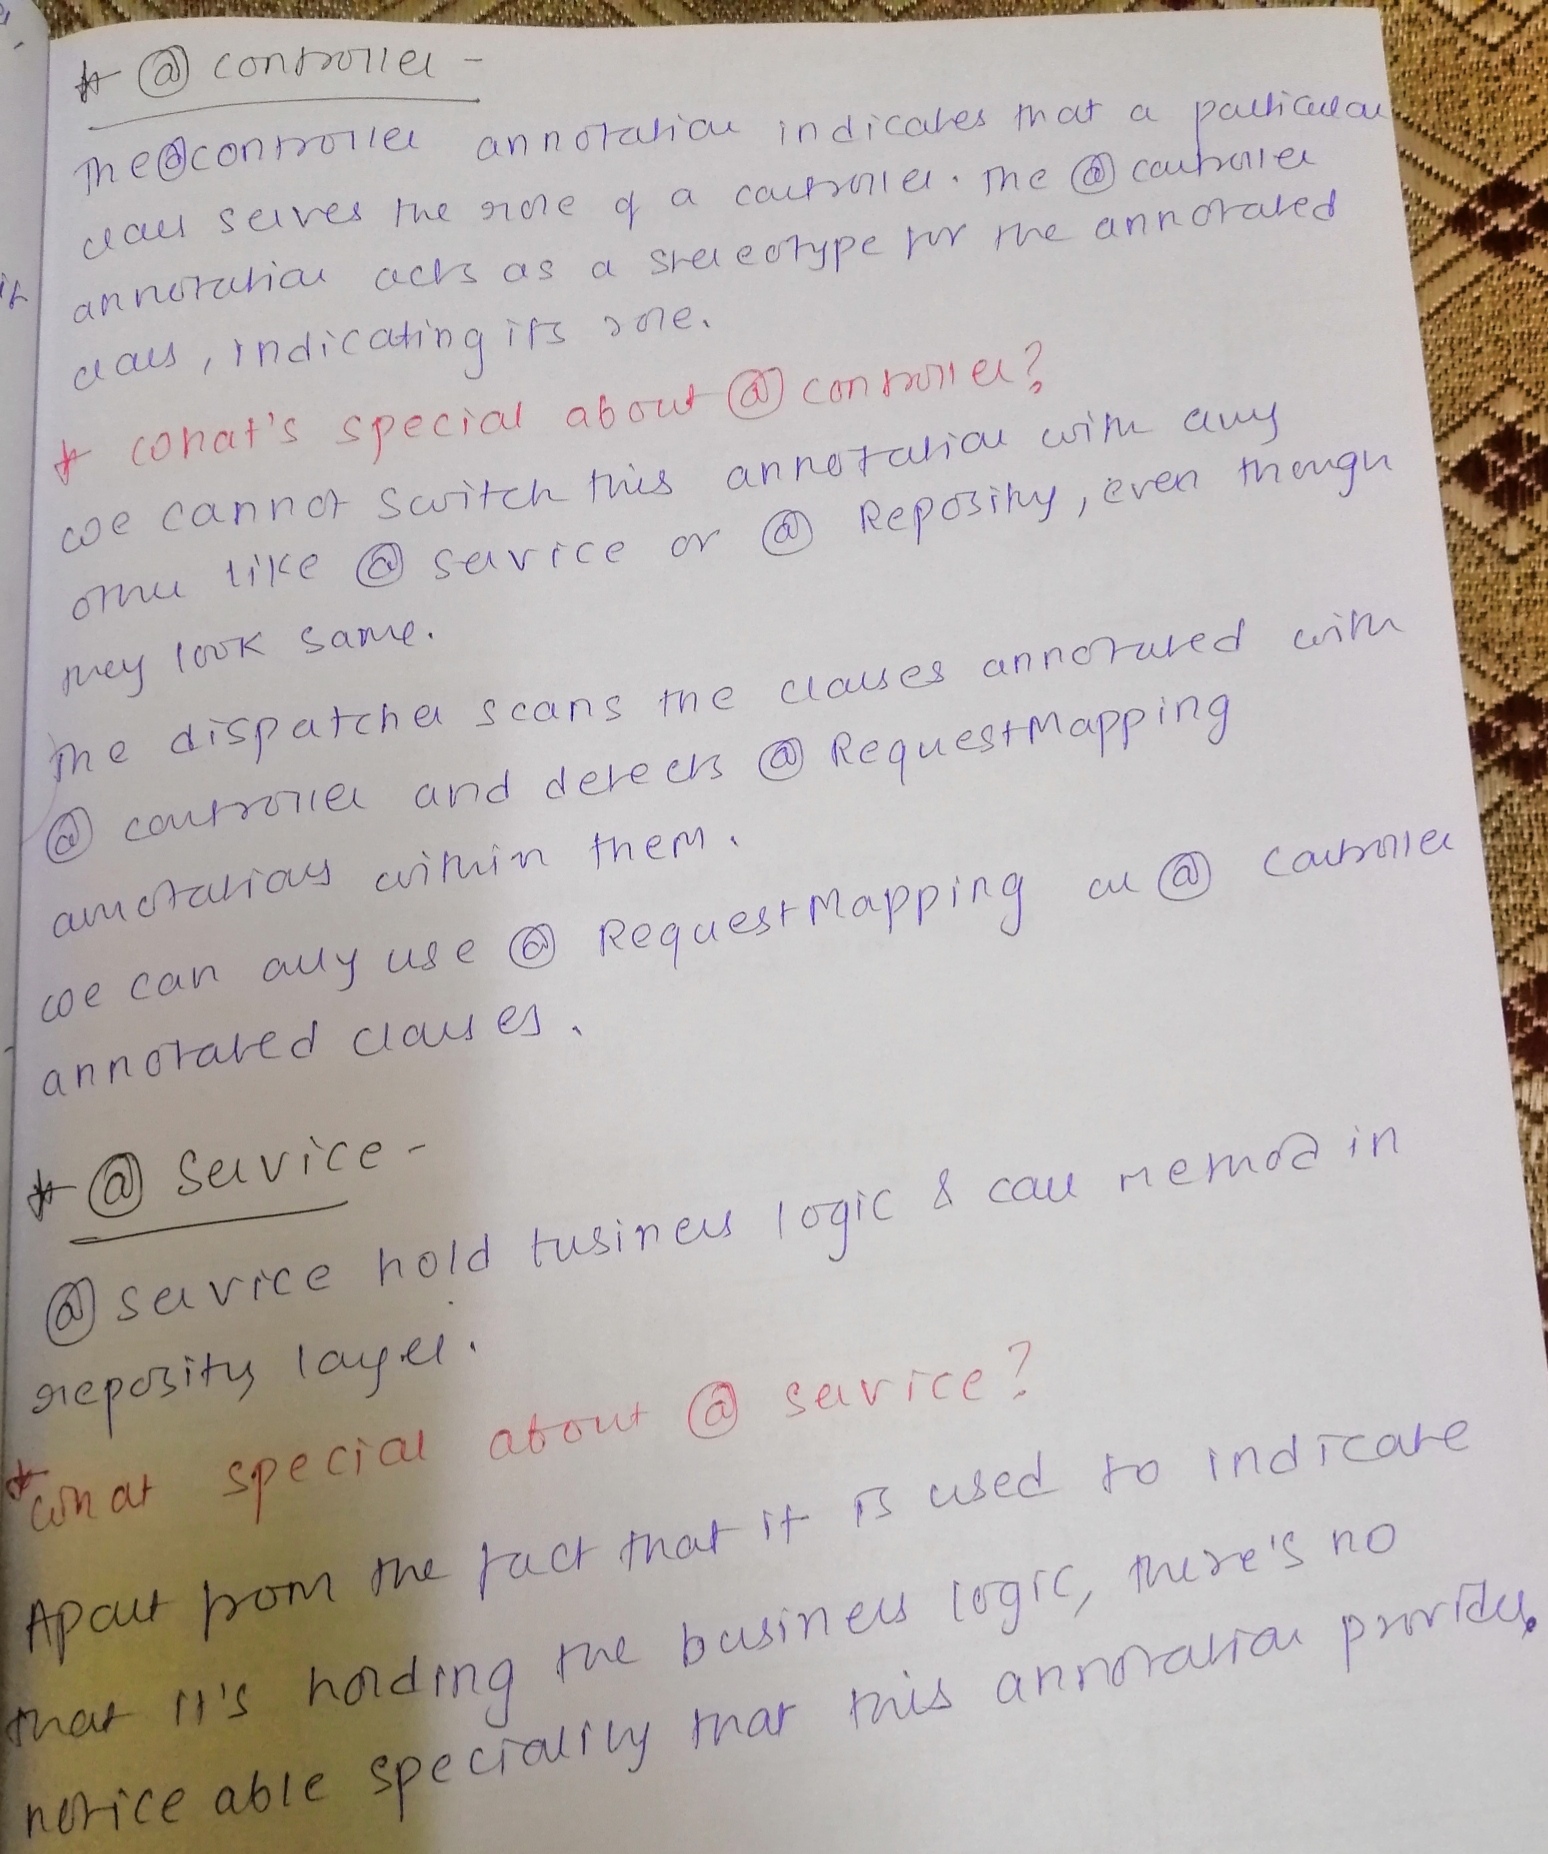 * @ controller -
The @controller annotation indicates that a particular
class serves the role of a controller. The @ controller
annotation acts as a stereotype for the annotated
class, indicating its role.
* What's special about @ controller?
we cannot switch this annotation with any
other like @ service or @ Reposity, even though
they look same.
The dispatcher scans the classes annotated with
@ controller and detects @ RequestMapping
annotations within them.
we can only use @ RequestMapping on @ Controller
annotated classes.
* @ Service -
@ service hold business logic & call method in
reposity layer.
* What special about @ service?
Apart from the fact that it is used to indicate
that it's holding the business logic, there's no
notice able speciality that this annotation provides.